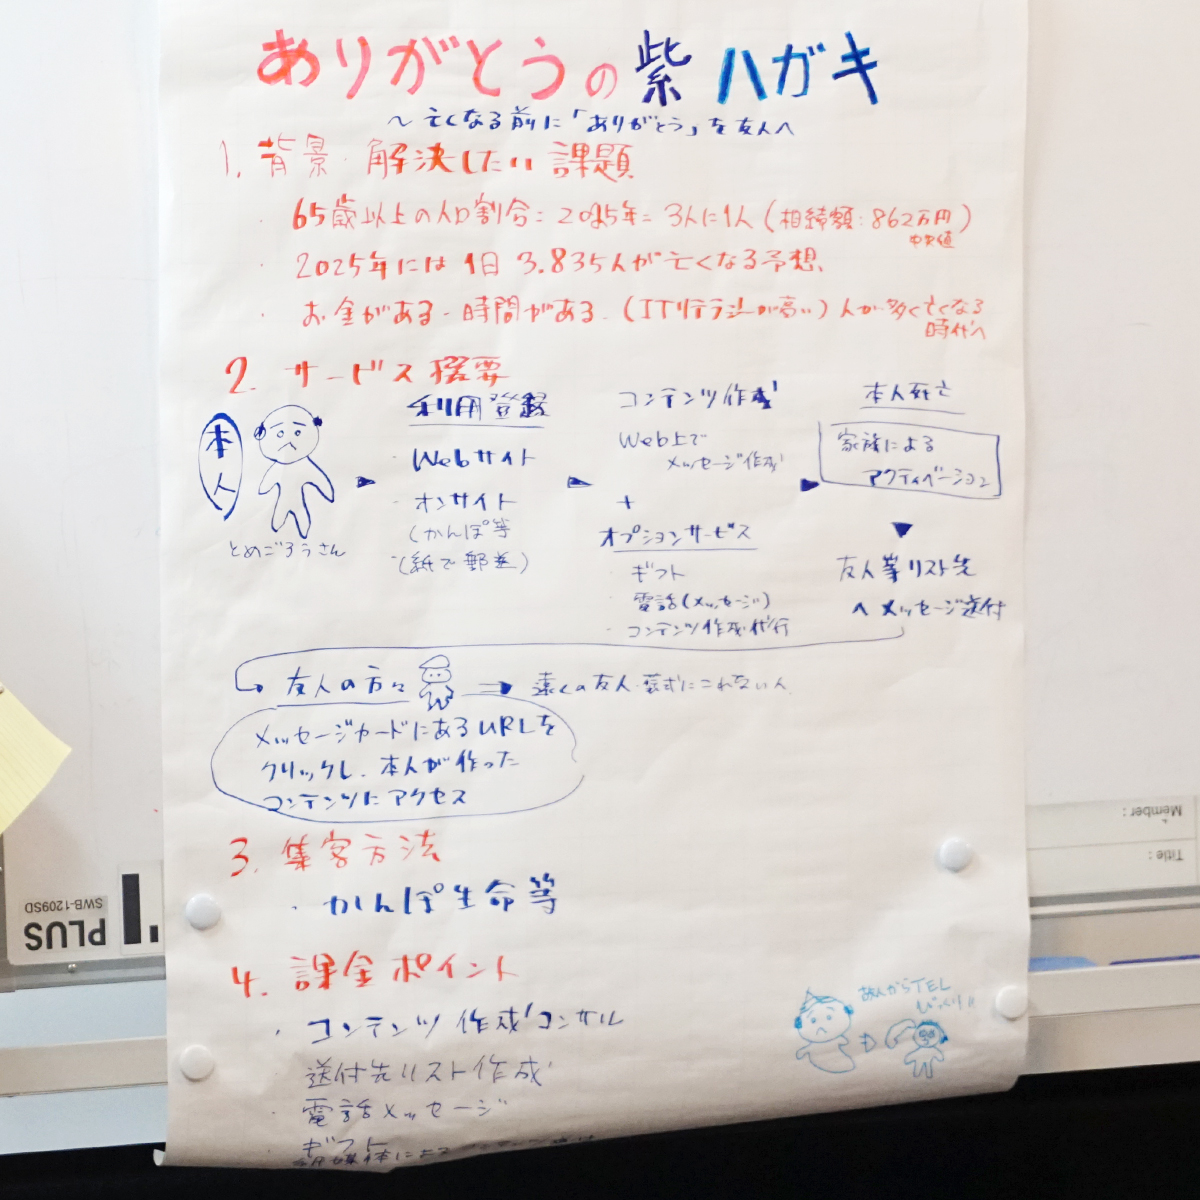 ありがとうの紫ハガキ
〜亡くなる前に「ありがとう」を友人へ
1. 背景・解決したい課題
・65歳以上の人口割合：2025年＝3人に1人（相続額：862万円）
中央値
・2025年には1日3.835人が亡くなる予想、
・お金がある・時間がある．（ITリテラシーが高い）人が多く亡くなる
時代へ
2. サービス概要
本人
とめごろうさん
利用登録
・Webサイト
・オンサイト
（かんぽ等
・（紙で郵送）
コンテンツ作成
Web上で
メッセージ作成
+
オプションサービス
・ギフト
・電話（メッセージ）
・コンテンツ作成代行
本人死亡
家族による
アクティベーション
友人等リスト先
へメッセージ送付
友人の方々
遠くの友人・葬式にこれない人
メッセージカードにあるURLを
クリックし、本人が作った
コンテンツにアクセス
3. 集客方法
・かんぽ生命等
4. 課金ポイント
・コンテンツ作成コンサル
送付先リスト作成
・電話メッセージ
ギフト
TEL
びっくり!!
PLUS
SWB-1209SD
Member :
Title :